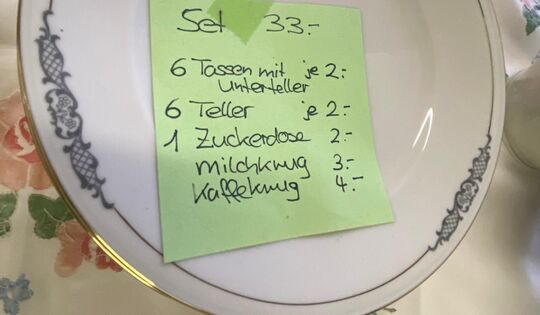 Set 33.-
6 Tassen mit je 2.-
Unterteller
6 Teller je 2.-
1 Zuckerdose 2.-
Milchkrug 3.-
Kaffekrug 4.-